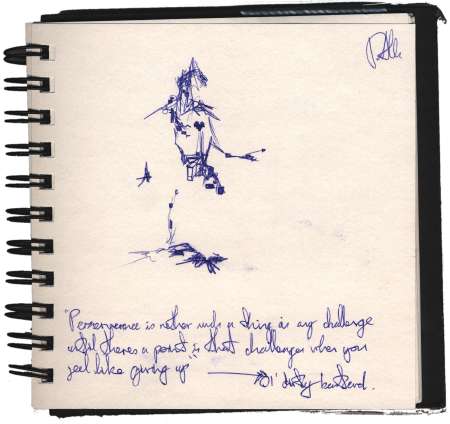 "Perserverence is such a thing in any challenge
until theres a point in that challenge when you
feel like giving up"
Ol' dirty bastard.